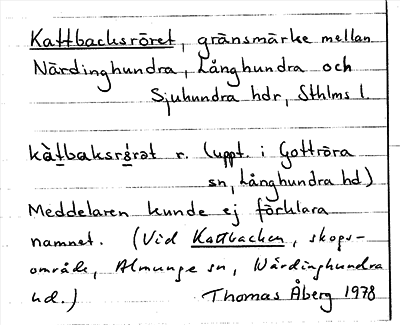 Kattbacksröret, gränsmärke mellan
Närdinghundra, Långhundra och
Sjuhundra hdr, Sthlms l.
kàtbaksrǿrət r. (uppt. i Gottröra
sn, Långhundra hd)
Meddelaren kunde ej förklara
namnet. (Vid Kattbacken, skogs-
område, Almunge sn, Närdinghundra
hd.) Thomas Åberg 1978